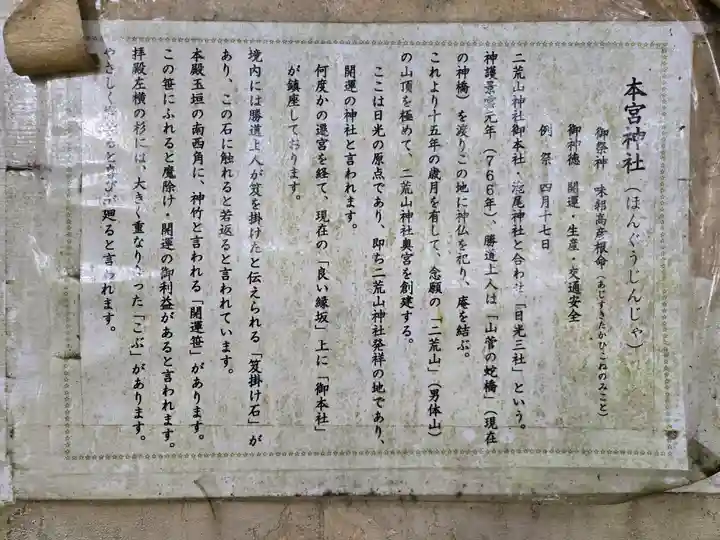 本宮神社(ほんぐうじんじゃ)
御祭神 味耜高彦根命(あじすきたかひこねのみこと)
御神徳 開運・生産・交通安全
例祭 四月十七日
二荒山神社御本社・滝尾神社と合わせ「日光三社」という。
神護景雲元年(766年)、勝道上人は「山菅の蛇橋」(現在
の神橋)を渡りこの地に神仏を祀り、庵を結ぶ。
これより十五年の歳月を有して、念願の「二荒山」(男体山)
の山頂を極めて、二荒山神社奥宮を創建する。
ここは日光の原点であり、即ち二荒山神社発祥の地であり、
開運の神社と言われます。
何度かの遷宮を経て、現在の「良い縁坂」上に「御本社」
が鎮座しております。
境内には勝道上人が笈を掛けたと伝えられる「笈掛け石」が
あり、この石に触れると若返ると言われています。
本殿玉垣の南西角に、神竹と言われる「開運笹」があります。
この笹にふれると魔除け・開運の御利益があると言われます。
拝殿左横の杉には、大きく重なり合った「こぶ」があります。
やさしく ると 廻ると言われます。